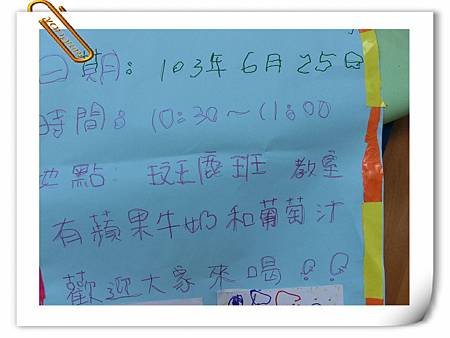 日期：103年6月25日
時間：10:30～11:00
地點：斑鹿班 教室
有蘋果牛奶和葡萄汁
歡迎大家來喝！！